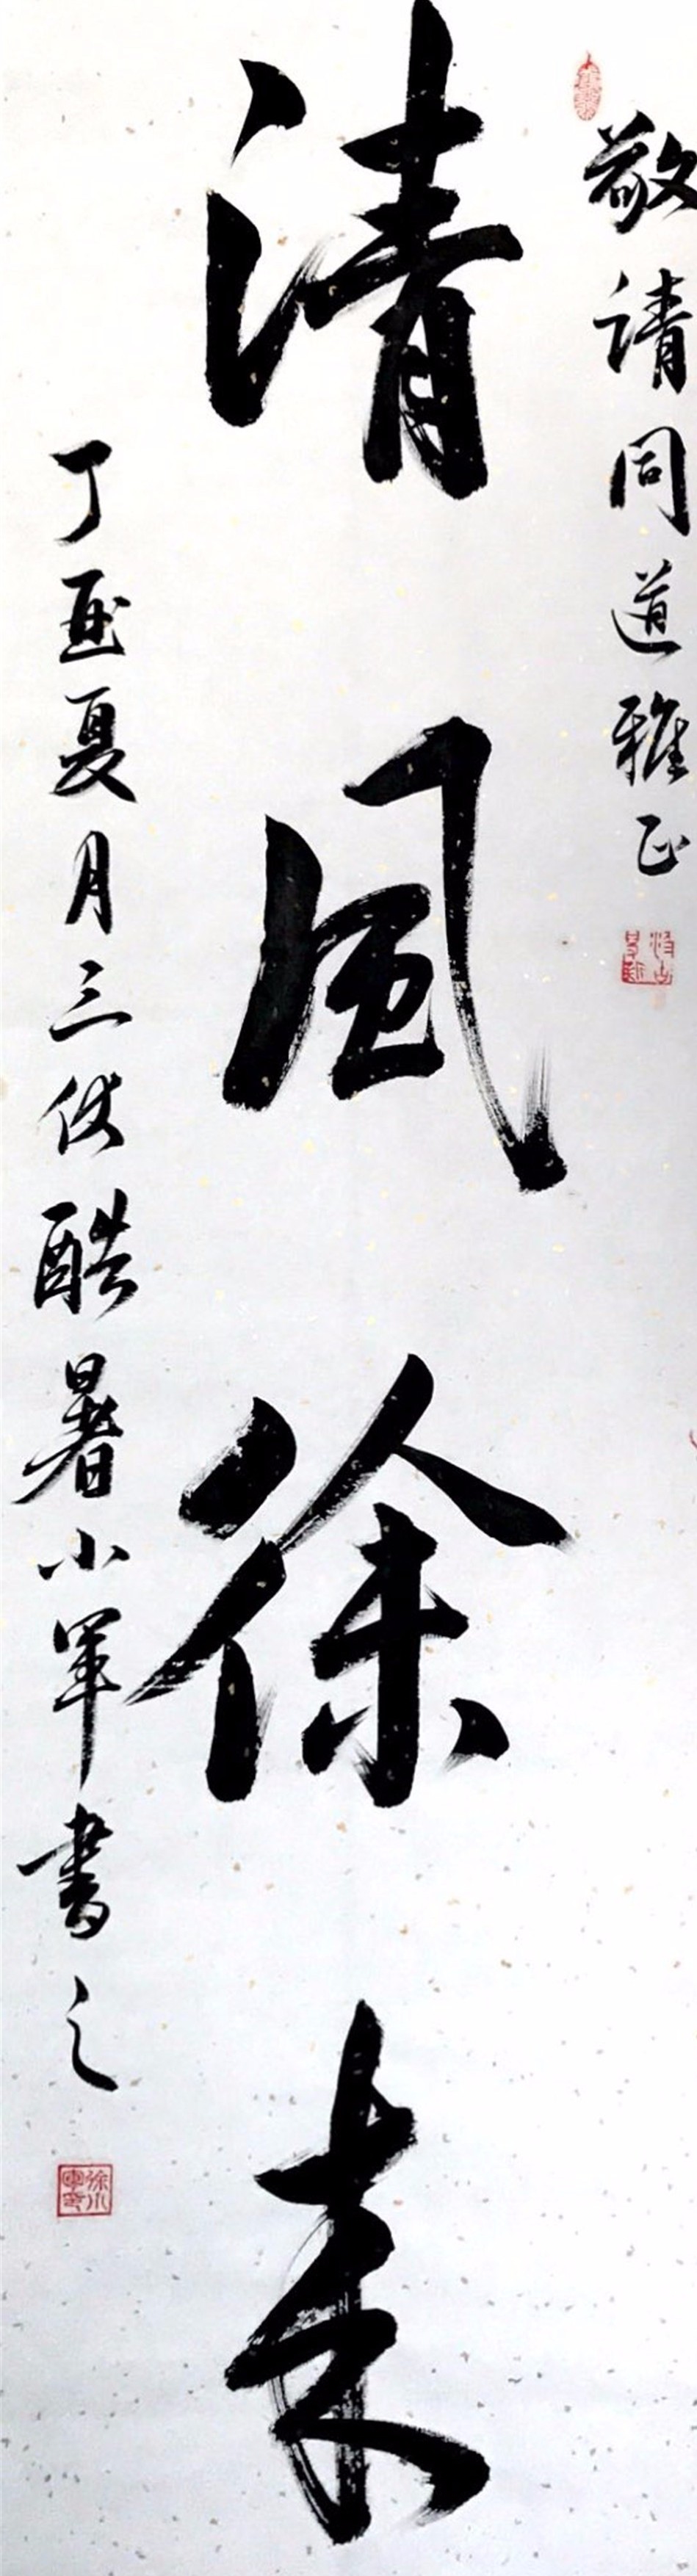 敬请同道雅正
清风徐来
丁酉夏月三伏酷暑小军书之